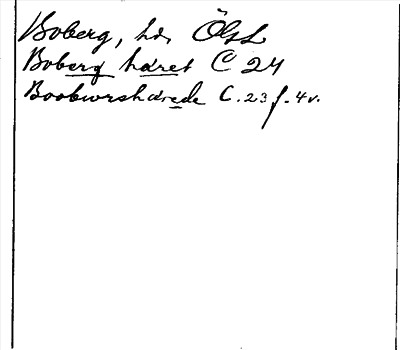 Boberg, hd, Ögl
Boberg häret C 24
Boobwrshærede C. 23 f. 4 v.